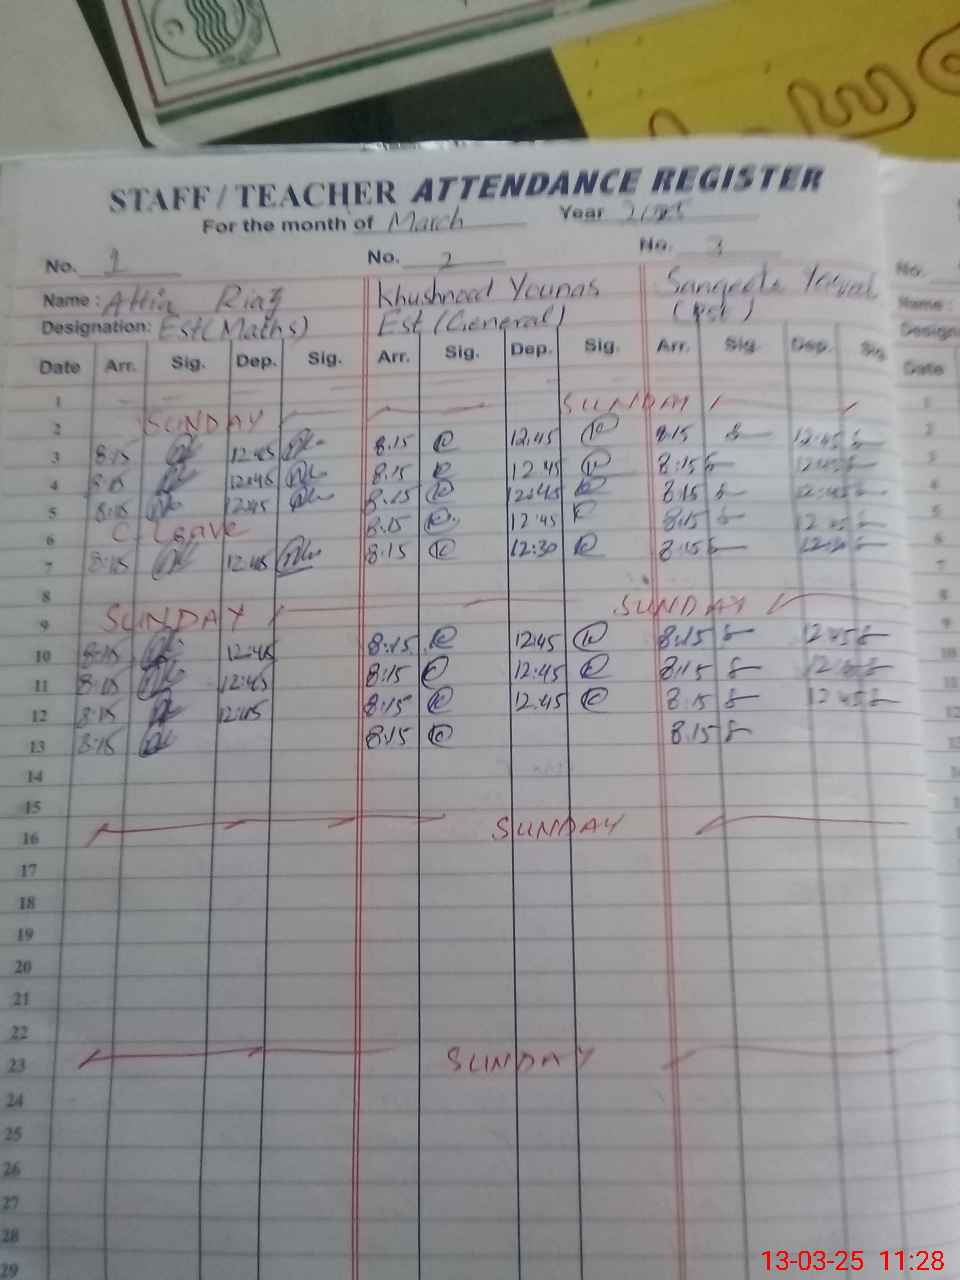 STAFF / TEACHER ATTENDANCE REGISTER
For the month of March Year
No. 1 No. 2 No. 3 No.
Name : Attia Riaz Khushnood Younas Sangeeta Name :
Designation: Est (Maths) Est (General) (Pst)
Date Arr. Sig. Dep. Sig. Arr. Sig. Dep. Sig. Arr. Sig. Dep. Sig Date
1 1
2 SUNDAY SUNDAY 2
3 8:15 12:45 8:15 12:45 8:15 12:45 3
4 8:15 12:45 8:15 12:45 8:15 12:45 4
5 8:15 12:45 8:15 12:45 8:15 12:45 5
6 C Leave 8:15 12:45 8:15 12:45 6
7 8:15 12:45 8:15 12:30 8:15 12:30 7
8 8
9 SUNDAY SUNDAY 9
10 8:15 12:45 8:15 12:45 8:15 12:45 10
11 8:15 12:45 8:15 12:45 8:15 12:45 11
12 8:15 12:45 8:15 12:45 8:15 12:45 12
13 8:15 8:15 8:15
14
15
16 SUNDAY
17
18
19
20
21
22
23 SUNDAY
24
25
26
27
28
29
13-03-25 11:28